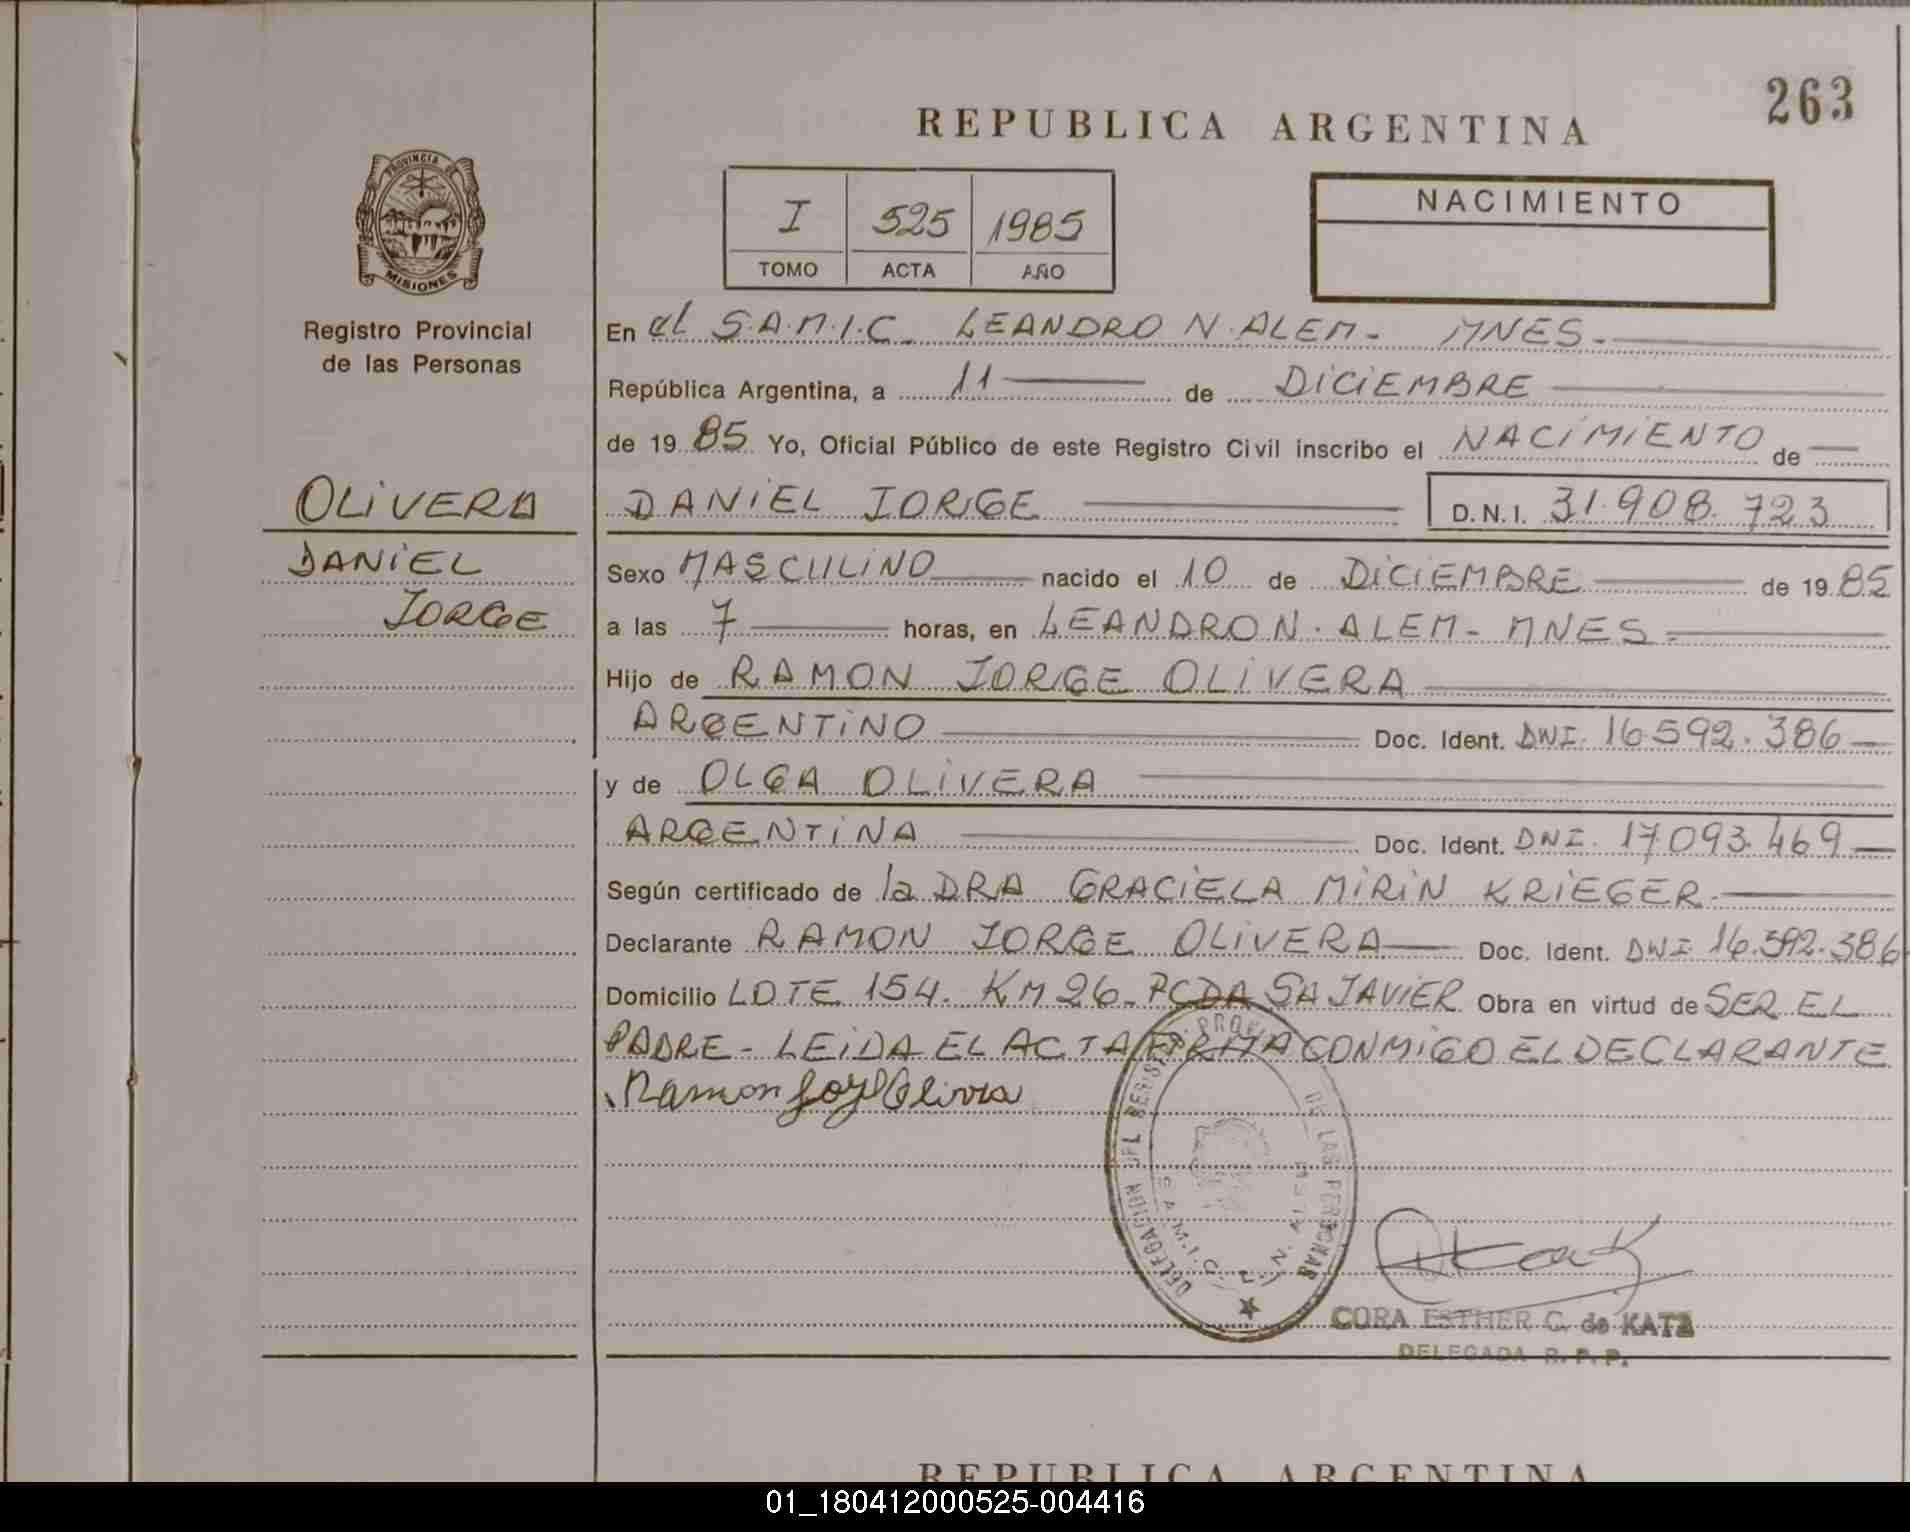 263
REPUBLICA ARGENTINA
PROVINCIA DE
MISIONES
Registro Provincial
de las Personas
I 525 1985
TOMO ACTA AÑO
NACIMIENTO
En el S.A.M.I.C. LEANDRO N. ALEM - MNES.
República Argentina, a 11 de DICIEMBRE
de 1985 Yo, Oficial Público de este Registro Civil inscribo el NACIMIENTO de
OLIVERA
DANIEL
JORGE
DANIEL JORGE D.N.I. 31.908.723
Sexo MASCULINO nacido el 10 de DICIEMBRE de 1985
a las 7 horas, en LEANDRO N. ALEM - MNES
Hijo de RAMON JORGE OLIVERA
ARGENTINO Doc. Ident. DNI. 16.592.386
y de OLGA OLIVERA
ARGENTINA Doc. Ident. DNI. 17.093.469
Según certificado de la DRA GRACIELA MIRIN KRIEGER
Declarante RAMON JORGE OLIVERA Doc. Ident. DNI 16.592.386
Domicilio LOTE 154. KM 26 - PCDA SA JAVIER Obra en virtud de SER EL
PADRE - LEIDA EL ACTA FIRMA CONMIGO EL DECLARANTE
Ramon Jorge Olivera
DELEGACION DEL REGISTRO PROV. DE LAS PERSONAS
S.A.M.I.C. L. N. ALEM
CORA ESTHER C. de KATZ
DELEGADA R. P. P.
REPUBLICA ARGENTINA
01_180412000525-004416